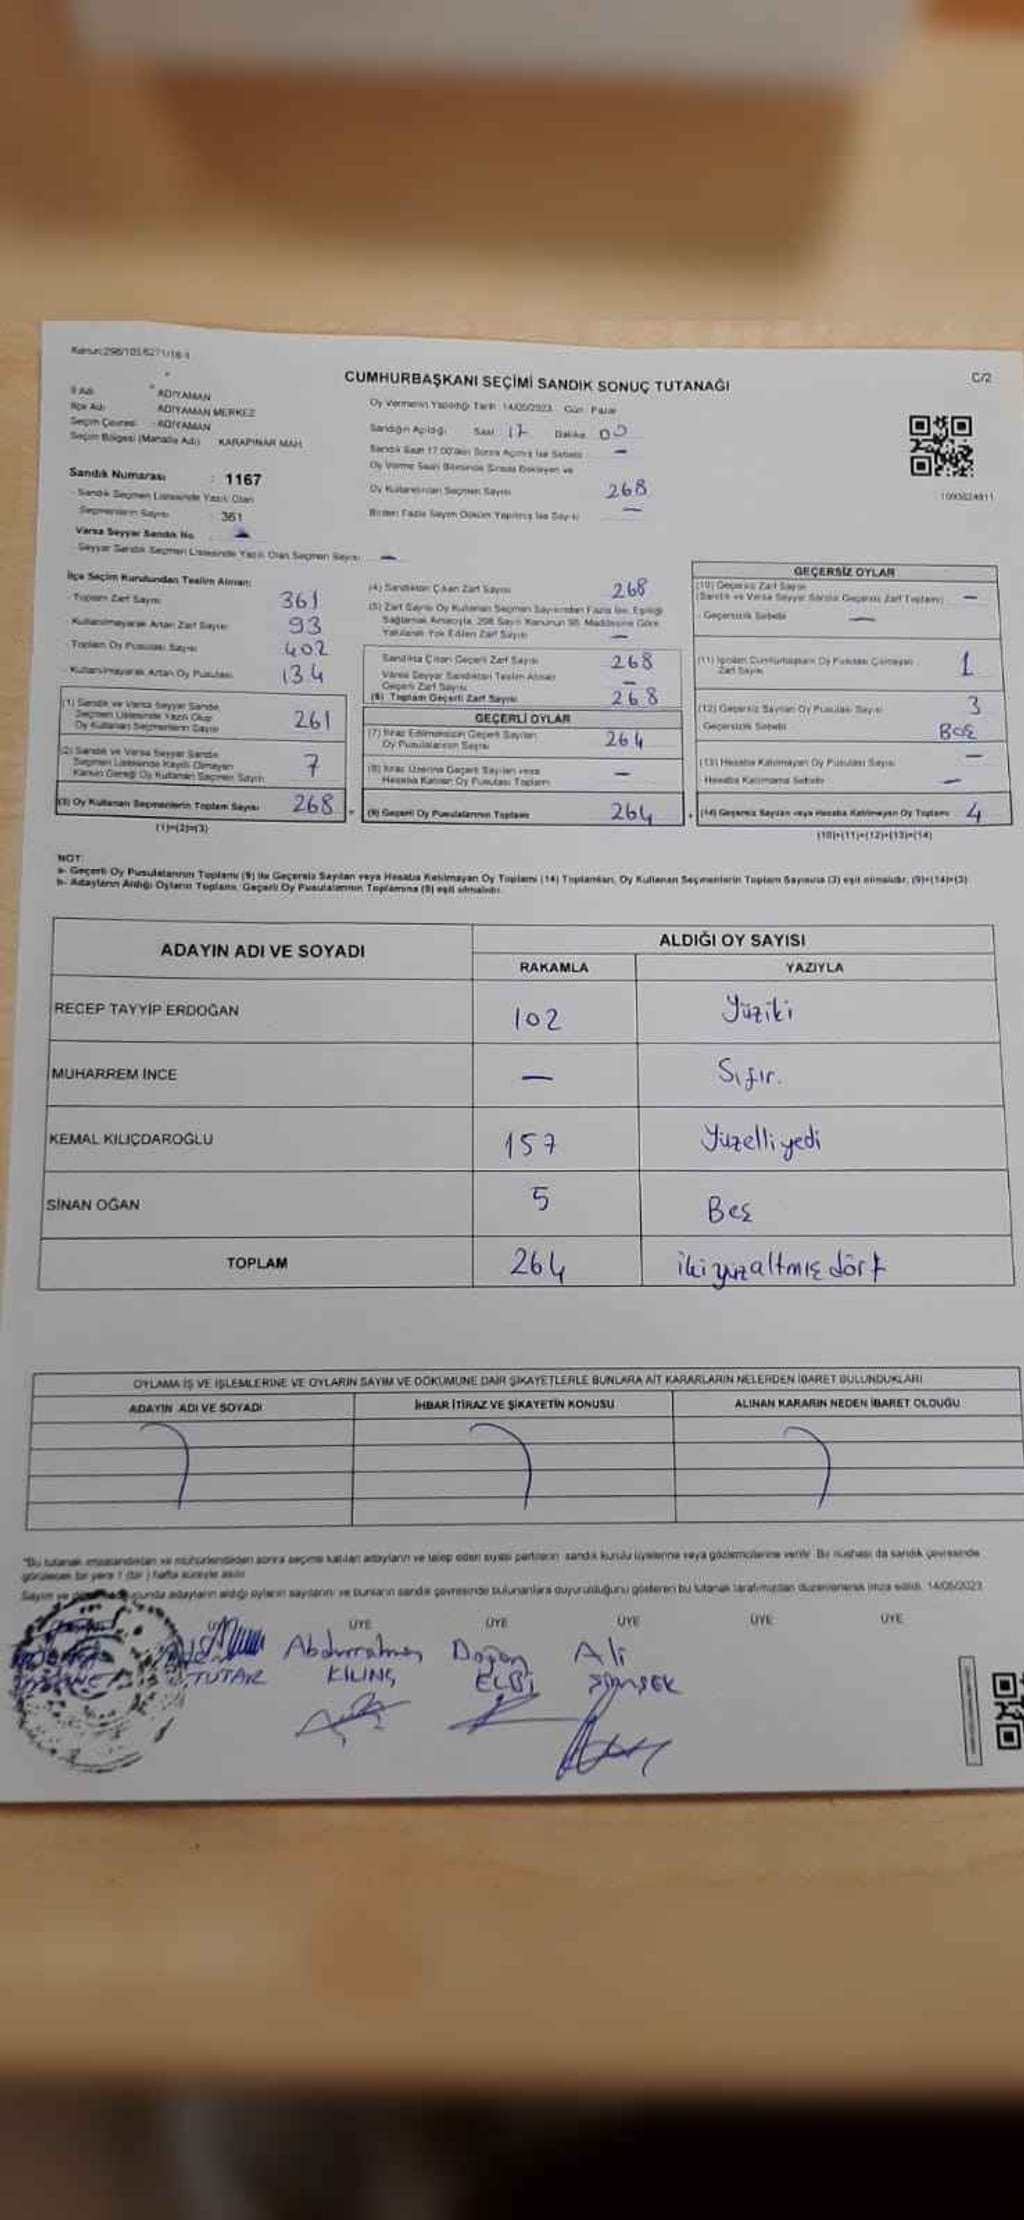 Kanun:298/103,6271/18-1
C/2
CUMHURBAŞKANI SEÇİMİ SANDIK SONUÇ TUTANAĞI
İl Adı : ADIYAMAN
İlçe Adı : ADIYAMAN MERKEZ
Seçim Çevresi : ADIYAMAN
Seçim Bölgesi (Mahalle Adı) : KARAPINAR MAH.
Sandık Numarası : 1167
- Sandık Seçmen Listesinde Yazılı Olan
Seçmenlerin Sayısı : 361
Varsa Seyyar Sandık No
- Seyyar Sandık Seçmen Listesinde Yazılı Olan Seçmen Sayısı : —
Oy Vermenin Yapıldığı Tarih : 14/05/2023 Gün : Pazar
Sandığın Açıldığı Saat 17 Dakika 00
Sandık Saat 17.00'dan Sonra Açılmış İse Sebebi —
Oy Verme Saati Bitiminde Sırada Bekleyen ve
Oy Kullandırılan Seçmen Sayısı 268
Birden Fazla Sayım Döküm Yapılmış İse Sayısı —
1093024811
İlçe Seçim Kurulundan Teslim Alınan:
- Toplam Zarf Sayısı 361
- Kullanılmayarak Artan Zarf Sayısı 93
- Toplam Oy Pusulası Sayısı 402
- Kullanılmayarak Artan Oy Pusulası 134
(1) Sandık ve Varsa Seyyar Sandık
Seçmen Listesinde Yazılı Olup
Oy Kullanan Seçmenlerin Sayısı 261
(2) Sandık ve Varsa Seyyar Sandık
Seçmen Listesinde Kayıtlı Olmayan
Kanun Gereği Oy Kullanan Seçmen Sayısı 7
(3) Oy Kullanan Seçmenlerin Toplam Sayısı 268
(1)+(2)=(3)
(4) Sandıktan Çıkan Zarf Sayısı 268
(5) Zarf Sayısı Oy Kullanan Seçmen Sayısından Fazla İse, Eşitliği
Sağlamak Amacıyla, 298 Sayılı Kanunun 98. Maddesine Göre
Yakılarak Yok Edilen Zarf Sayısı —
Sandıkta Çıkan Geçerli Zarf Sayısı 268
Varsa Seyyar Sandıktan Teslim Alınan
Geçerli Zarf Sayısı —
(6) Toplam Geçerli Zarf Sayısı 268
GEÇERLİ OYLAR
(7) İtiraz Edilmeksizin Geçerli Sayılan
Oy Pusulalarının Sayısı 264
(8) İtiraz Üzerine Geçerli Sayılan veya
Hesaba Katılan Oy Pusulası Toplamı —
(9) Geçerli Oy Pusulalarının Toplamı 264
GEÇERSİZ OYLAR
(10) Geçersiz Zarf Sayısı
(Sandık ve Varsa Seyyar Sandık Geçersiz Zarf Toplamı) —
- Geçersizlik Sebebi —
(11) İçinden Cumhurbaşkanı Oy Pusulası Çıkmayan
Zarf Sayısı 1
(12) Geçersiz Sayılan Oy Pusulası Sayısı 3
Geçersizlik Sebebi Boş
(13) Hesaba Katılmayan Oy Pusulası Sayısı —
Hesaba Katılmama Sebebi —
(14) Geçersiz Sayılan veya Hesaba Katılmayan Oy Toplamı 4
(10)+(11)+(12)+(13)=(14)
NOT:
a- Geçerli Oy Pusulalarının Toplamı (9) ile Geçersiz Sayılan veya Hesaba Katılmayan Oy Toplamı (14) Toplamları, Oy Kullanan Seçmenlerin Toplam Sayısına (3) eşit olmalıdır. (9)+(14)=(3)
b- Adayların Aldığı Oyların Toplamı, Geçerli Oy Pusulalarının Toplamına (9) eşit olmalıdır.
ADAYIN ADI VE SOYADI
ALDIĞI OY SAYISI
RAKAMLA YAZIYLA
RECEP TAYYİP ERDOĞAN 102 Yüziki
MUHARREM İNCE — Sıfır.
KEMAL KILIÇDAROĞLU 157 Yüzelliyedi
SİNAN OĞAN 5 Beş
TOPLAM 264 ikiyüzaltmış dört
OYLAMA İŞ VE İŞLEMLERİNE VE OYLARIN SAYIM VE DÖKÜMÜNE DAİR ŞİKAYETLERLE BUNLARA AİT KARARLARIN NELERDEN İBARET BULUNDUKLARI
ADAYIN ADI VE SOYADI İHBAR İTİRAZ VE ŞİKAYETİN KONUSU ALINAN KARARIN NEDEN İBARET OLDUĞU
"Bu tutanak imzalandıktan ve mühürlendikten sonra seçime katılan adayların ve talep eden siyasi partilerin sandık kurulu üyelerine veya gözlemcilerine verilir. Bir nüshası da sandık çevresinde
görülecek bir yere 1 (bir) hafta süreyle asılır.
Sayım ve sonucunda adayların aldığı oyların sayılarını ve bunların sandık çevresinde bulunanlara duyurulduğunu gösteren bu tutanak tarafımızdan düzenlenerek imza edildi. 14/05/2023
ÜYE ÜYE ÜYE ÜYE ÜYE
Abdurrahman Doğan Ali
TUTAR KILINÇ ELBİ ŞİMŞEK